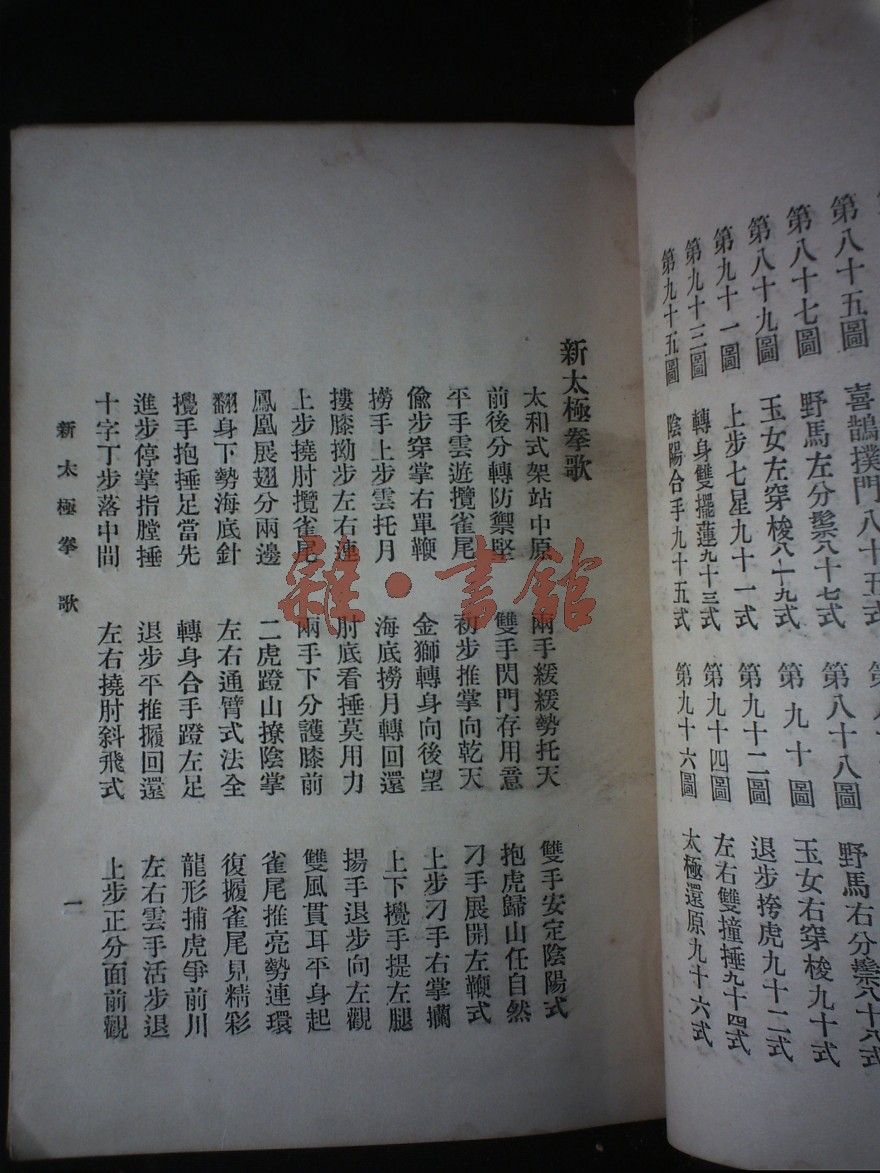 第八十五圖 喜鵲撲門八十五式
第八十七圖 野馬左分鬃八十七式 第八十八圖 野馬右分鬃八十八式
第八十九圖 玉女左穿梭八十九式 第九十圖 玉女右穿梭九十式
第九十一圖 上步七星九十一式 第九十二圖 退步挎虎九十二式
第九十三圖 轉身雙擺蓮九十三式 第九十四圖 左右雙撞捶九十四式
第九十五圖 陰陽合手九十五式 第九十六圖 太極還原九十六式
新太極拳歌
太和式架站中原 兩手緩緩勢托天 雙手安定陰陽式
前後分轉防禦堅 雙手閃門存用意 抱虎歸山任自然
平手雲遊攬雀尾 初步推掌向乾天 刁手展開左鞭式
偸步穿掌右單鞭 金獅轉身向後望 上步刁手右掌攔
撈手上步雲托月 海底撈月轉回還 上下攪手提左腿
摟膝拗步左右連 肘底看捶莫用力 揚手退步向左觀
上步撓肘攬雀尾 兩手下分護膝前 雙風貫耳平身起
鳳凰展翅分兩邊 二虎蹬山撩陰掌 雀尾推亮勢連環
翻身下勢海底針 左右通臂式法全 復擺雀尾見精彩
攪手抱捶足當先 轉身合手蹬左足 龍形捕虎爭前川
進步停掌指膛捶 退步平推擺回還 左右雲手活步退
十字丁步落中間 左右撓肘斜飛式 上步正分面前觀
新太極拳歌 一
雜·書館